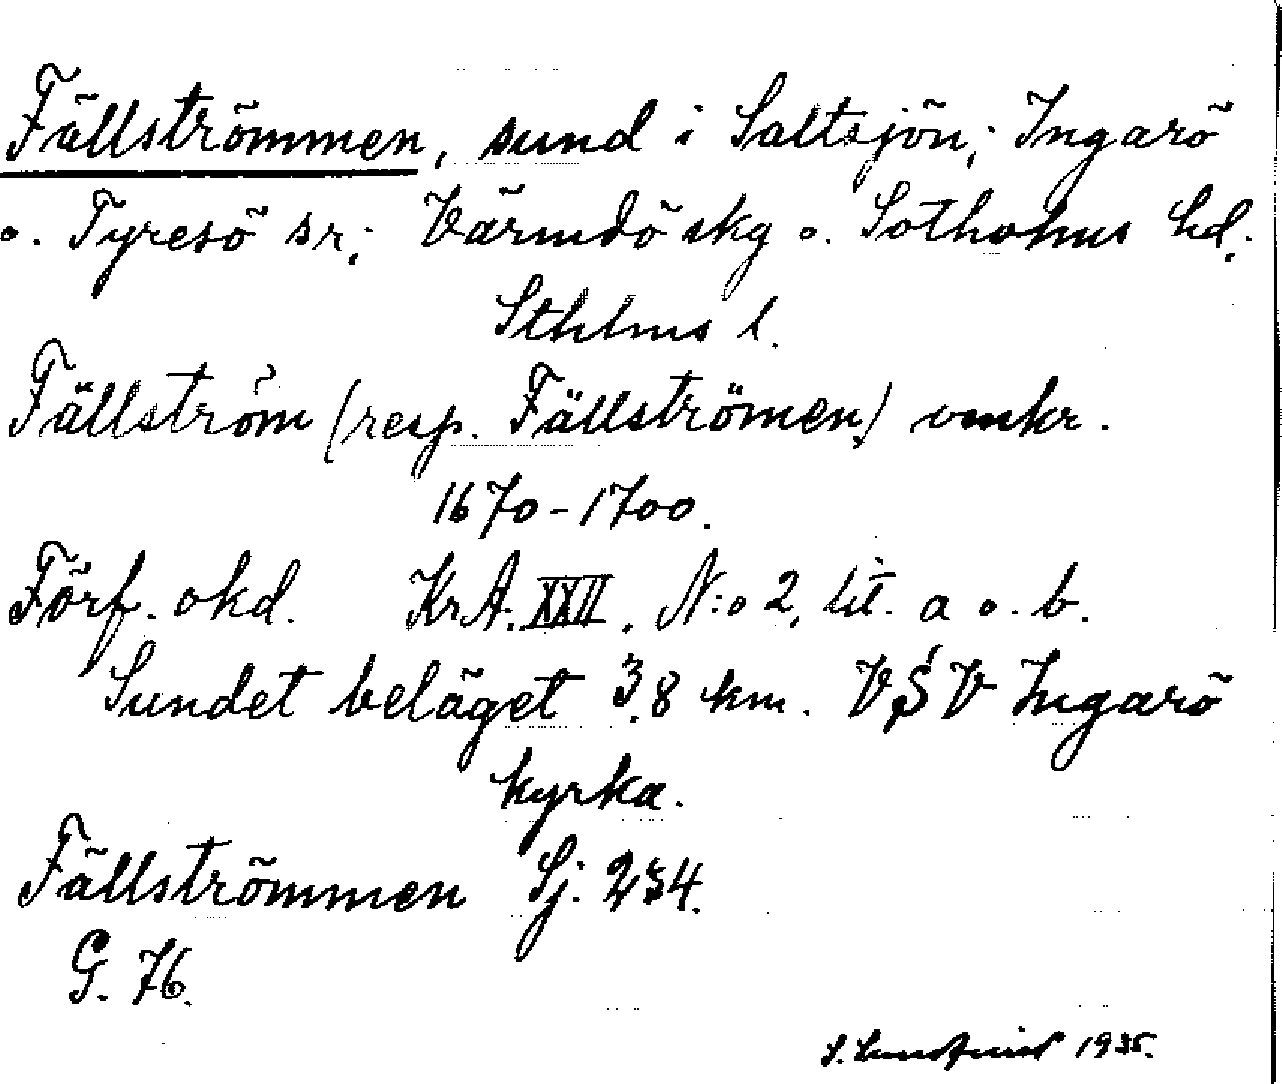 Fällströmmen, sund i Saltsjön; Ingarö
o. Tyresö sr; Värmdö skg o. Sotholms hd.
Sthlms l.
Fällström (resp. Fällströmen) omkr.
1670-1700.
Förf. okd. KrA. XXII. N:o 2, lit. a o. b.
Sundet beläget 3,8 km. VSV Ingarö
kyrka.
Fällströmmen Sj. 234.
G. 76.
S. 1935.